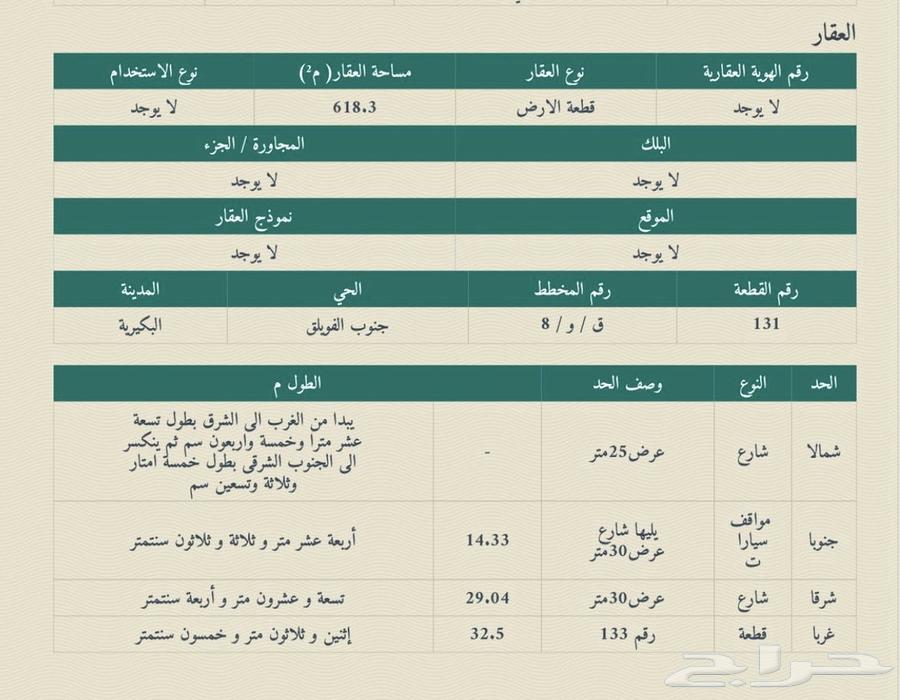 العقار
رقم الهوية العقارية نوع العقار مساحة العقار( م²) نوع الاستخدام
لا يوجد قطعة الارض 618.3 لا يوجد
البلك المجاورة / الجزء
لا يوجد لا يوجد
الموقع نموذج العقار
لا يوجد لا يوجد
رقم القطعة رقم المخطط الحي المدينة
131 ق / و / 8 جنوب الفويلق البكيرية
الحد النوع وصف الحد الطول م
شمالا شارع عرض25متر - يبدا من الغرب الى الشرق بطول تسعة
عشر مترا وخمسة واربعون سم ثم ينكسر
الى الجنوب الشرقي بطول خمسة امتار
وثلاثة وتسعين سم
جنوبا مواقف سيارا ت يليها شارع عرض30متر 14.33 أربعة عشر متر و ثلاثة و ثلاثون سنتمتر
شرقا شارع عرض30متر 29.04 تسعة و عشرون متر و أربعة سنتمتر
غربا قطعة رقم 133 32.5 إثنين و ثلاثون متر و خمسون سنتمتر
حراج